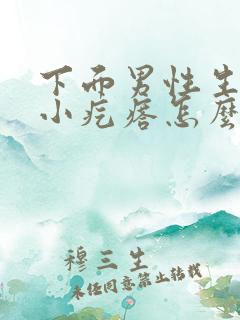 下面男性生
小疙瘩怎麼
穆三生
未经同意禁止转载